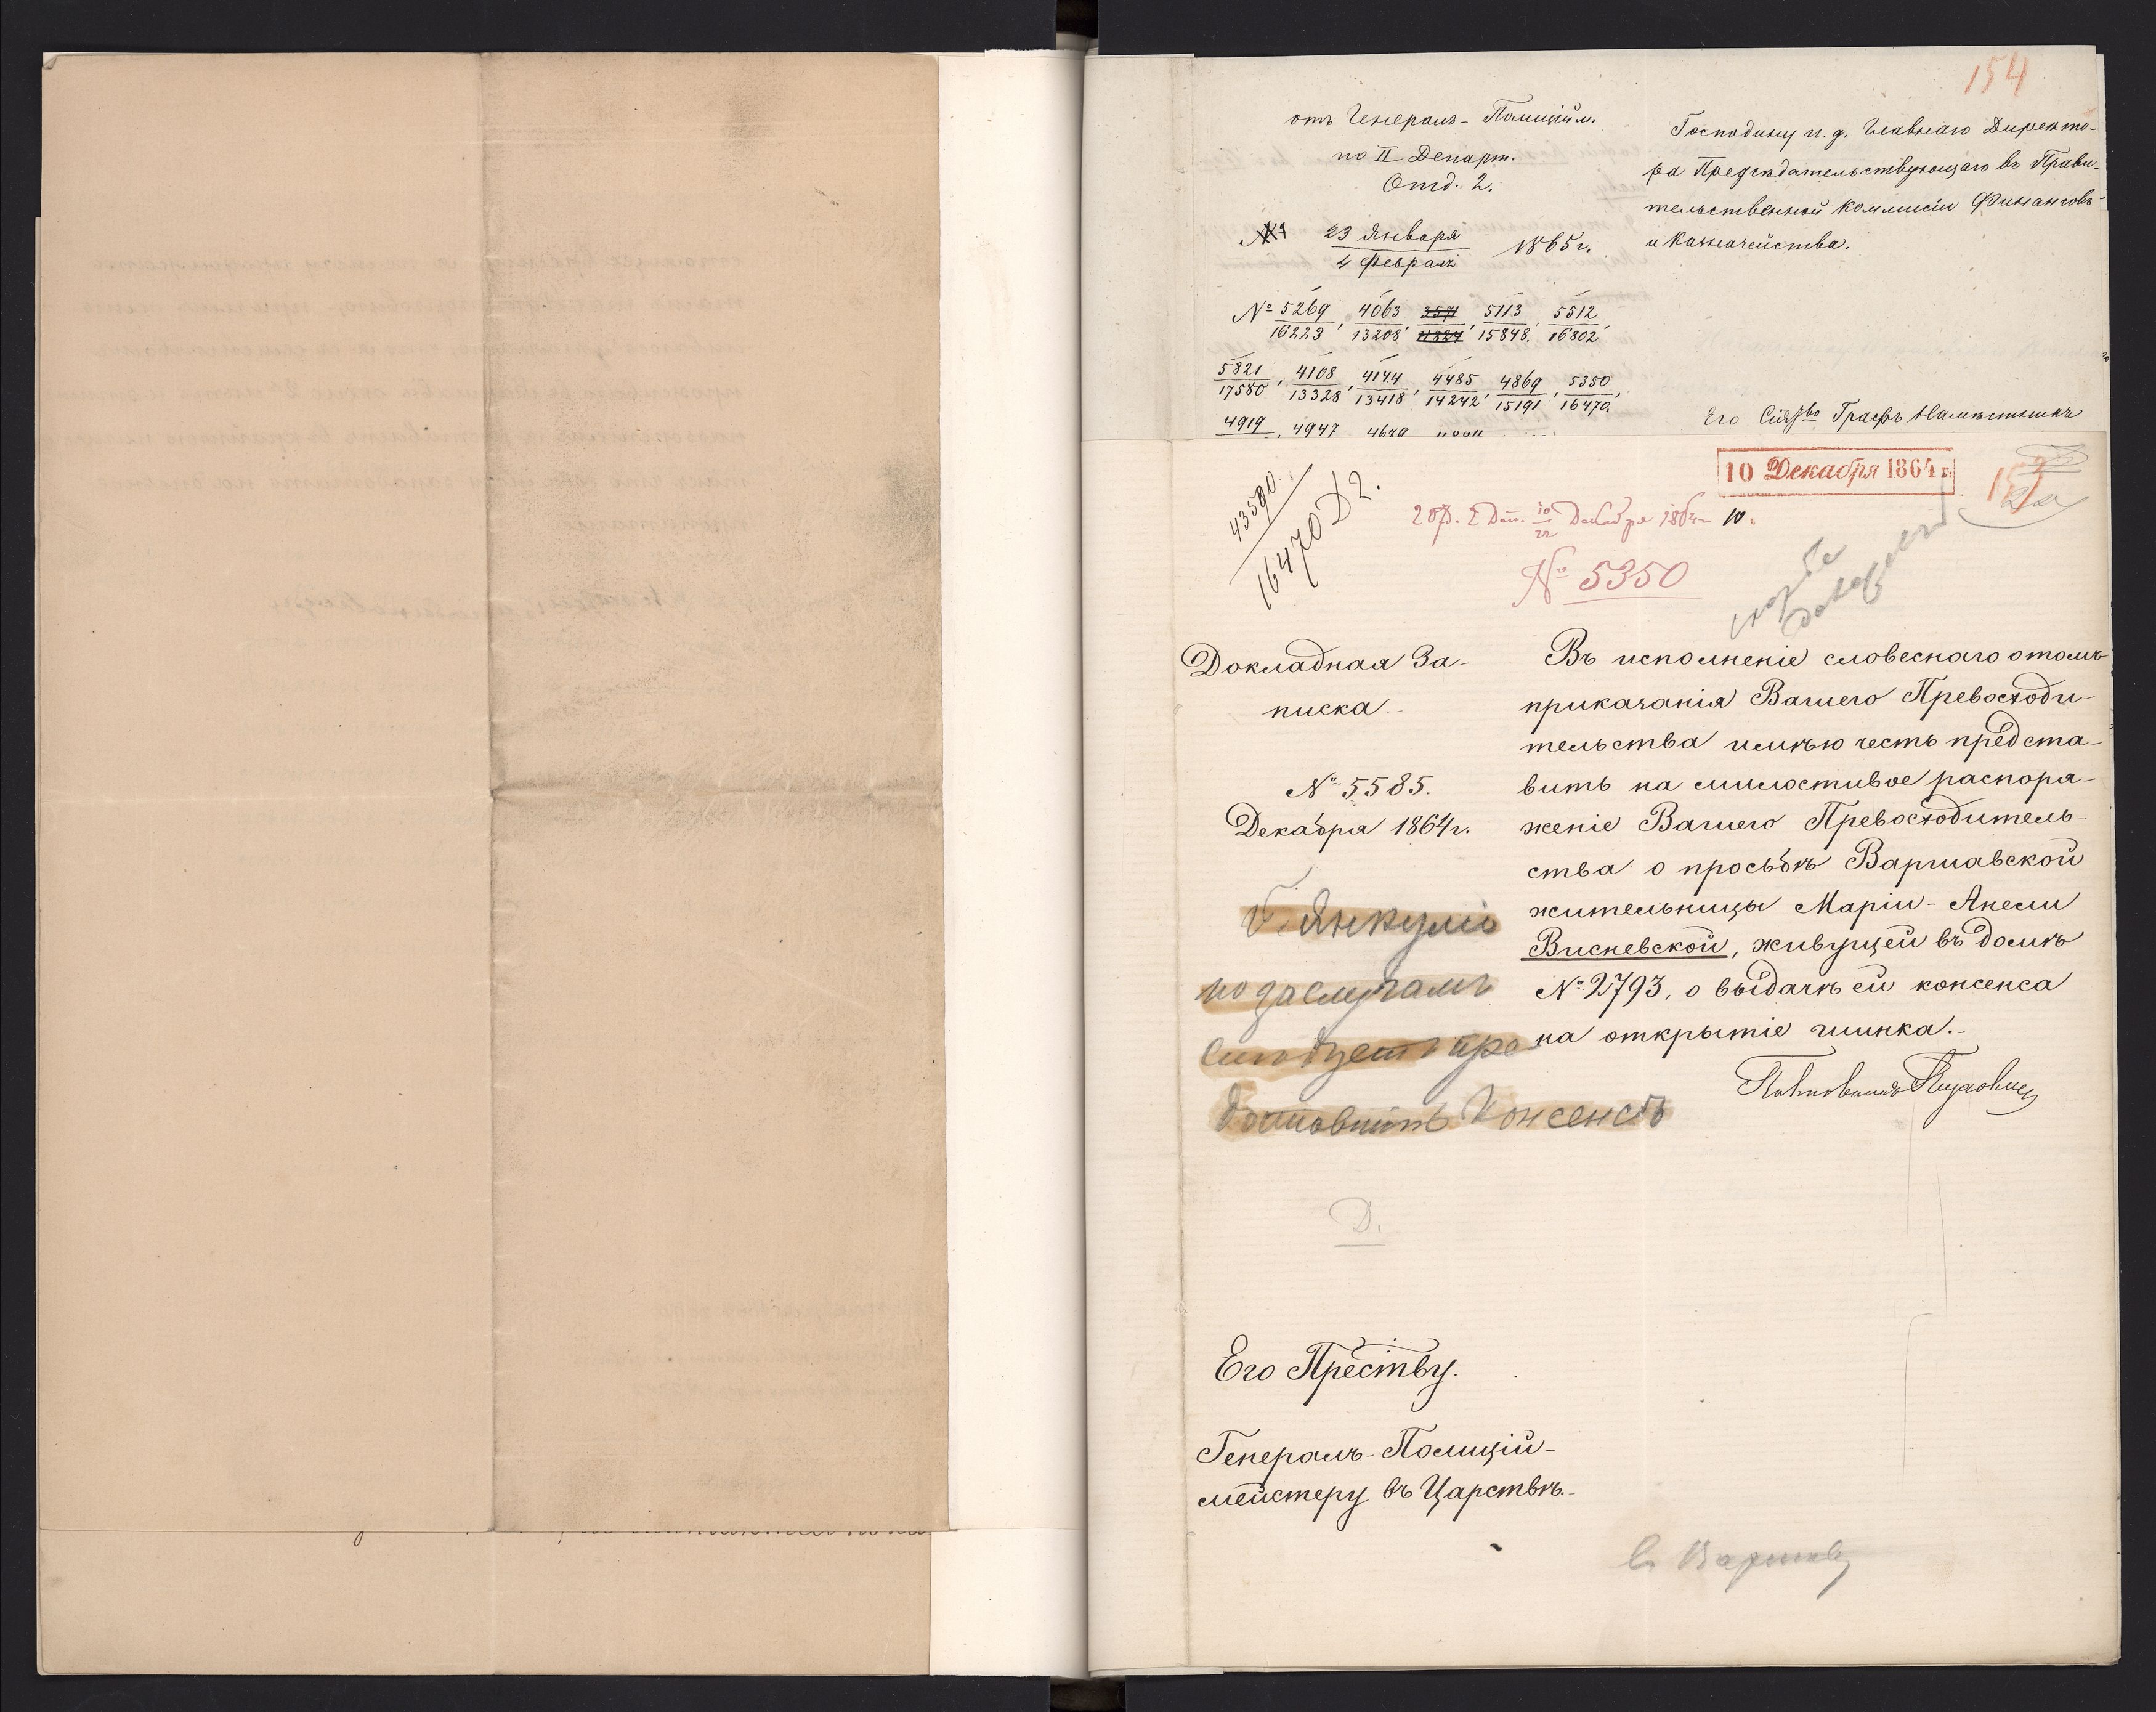 154
отъ Генералъ-Полиційм.
по II Департ.
Отд. 2.
23 Января
4 Февраля
1865 г.
№ 5269/16223, 4063/13208, 3571/11824, 5113/15848, 5512/16802,
5821/17580, 4108/13328, 4144/13418, 4485/14242, 4869/15191, 5350/16470,
4919, 4947
Господину и. д. Главнаго Директо-
ра Предсѣдательствующаго въ Прави-
тельственной Коммисіи Финансовъ
и Казначейства.
Его Сіят-во Графъ Намѣстникъ
10 Декабря 1864 г.
153
43590
16470 Д2.
10/22 Декабря 1864 г.
10.
№ 5350
Докладная За-
писка.
№ 5585.
Декабря 1864 г.
Въ исполненіе словеснаго отомъ
приказанія Вашего Превосходи-
тельства имѣю честь предста-
вить на милостивое распоря-
женіе Вашего Превосходитель-
ства о просьбѣ Варшавской
жительницы Маріи-Анели
Висневской, живущей въ домѣ
№ 2793, о выдачѣ ей консенса
на открытіе шинка.
Г. Янкуліо
по заслугамъ
слѣдуетъ пре
доставить Консенсъ
Д.
Его Прест̃ву.
Генералъ-Полицій-
мейстеру въ Царствѣ.
въ Варшаву